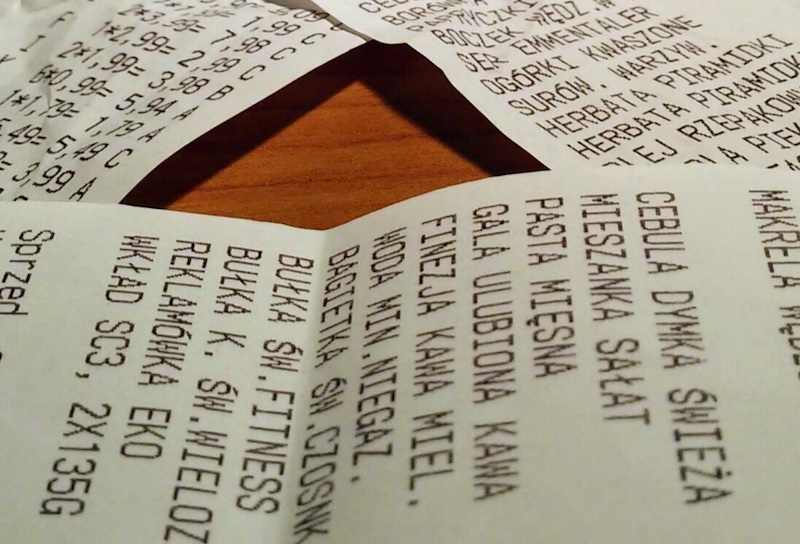 1,99 C
2*3,58= 7,98 C
1*2,99= 2,99 C
2*1,99= 3,98 B
6*0,99= 5,94 A
1*1,79= 1,79 A
5,49= 5,49 C
3,99 A
BOCZEK WĘDZ W
SER EMMENTALER
OGÓRKI KWASZONE
SURÓW. WARZYW.
HERBATA PIRAMIDKI
HERBATA PIRAMIDK
OLEJ RZEPAKOW
MAKRELA
CEBULA DYMKA ŚWIEŻA
MIESZANKA SAŁAT
PASTA MIĘSNA
GALA ULUBIONA KAWA
FINEZJA KAWA MIEL.
WODA MIN.NIEGAZ.
BAGIETKA ŚW.CZOSNK
BUŁKA ŚW.FITNESS
BUŁKA K. ŚW.WIELOZ
REKLAMÓWKA EKO
WKŁAD SC3, 2X135G
Sprzed